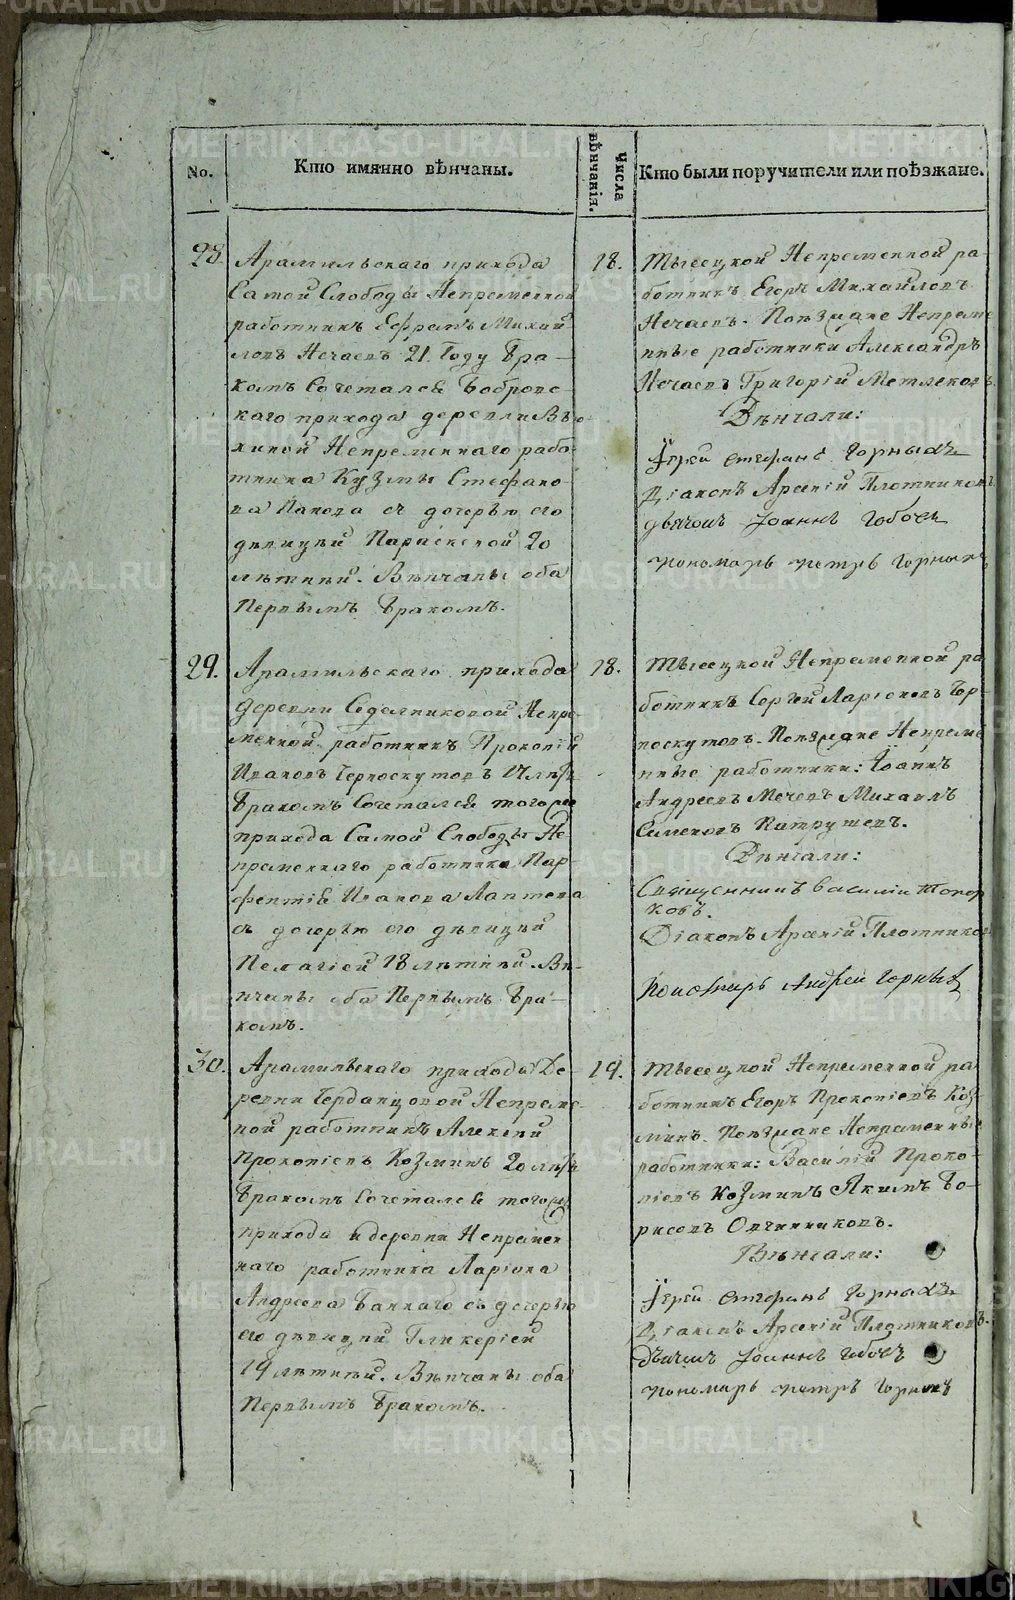 No.
Кто имянно вѣнчаны.
Числа вѣнчанія.
Кто были поручители или поѣзжане.
28.
Арамильскаго прихода
Самой Слободы Непременной
работникъ Ефремъ Михай
ловъ Нечаевъ 21 Году Бра-
комъ Сочетался Бобровс-
каго прихода деревни
Непременнаго рабо-
тника Кузмы Стефано-
ва Панова съ дочерью его
дѣвицей Параскевой 20
лѣтней. Вѣнчаны оба
Первымъ Бракомъ.
18.
Тысецкой Непременной ра-
ботникъ Егоръ Михайловъ
Нечаевъ. Поѣзжане Непреме
нные работники Александръ
Нечаевъ Григорій Метлековъ
Вѣнчали:
Іерей Стефанъ Горныхъ
Діаконъ Арсеній Плотниковъ
дьячокъ Іоаннъ
пономарь Петръ Горныхъ
29.
Арамильскаго прихода
деревни Седельниковой Непре-
менной работникъ Прокопій
Ивановъ Черноскутовъ 17 лѣтъ
Бракомъ Сочетался того же
прихода Самой Слободы Не
пременнаго работника Пар-
фентія Иванова Лаптева
съ дочерью его дѣвицей
Пелагіей 18 лѣтней. Вѣ-
нчаны оба Первымъ Бра-
комъ.
18.
Тысецкой Непременной ра
ботникъ Сергей Ларіоновъ Чер-
носкутовъ. Поѣзжане Непреме
нные работники: Іоаннъ
Андреевъ Мечевъ Михаилъ
Семеновъ Патрушевъ.
Вѣнчали:
Священникъ Василій Топор
ковъ.
Діаконъ Арсеній Плотников
Пономарь Андрей Горныхъ
30.
Арамильскаго прихода Де-
ревни Бердапцовой Непреме-
ной работникъ Алексей
Прокопіевъ Козминъ 20 лѣтъ
Бракомъ Сочетался того же
прихода и деревни Непремен
наго работника Ларіона
Андреева Баннаго съ дочерью
его дѣвицей Гликеріей
19 лѣтней. Вѣнчаны оба
Первымъ Бракомъ.
19.
Тысецкой Непременной ра
ботникъ Егоръ Прокопіевъ Коз-
минъ. Поѣзжане Непременные
работники: Василій Проко-
піевъ Козминъ Якимъ Бо-
рисовъ Овчинниковъ.
Вѣнчали:
Іерей Стефанъ Горныхъ
Діаконъ Арсеній Плотниковъ.
Дьячокъ Іоаннъ
пономарь Петръ Горныхъ
METRIKI.GASO-URAL.RU